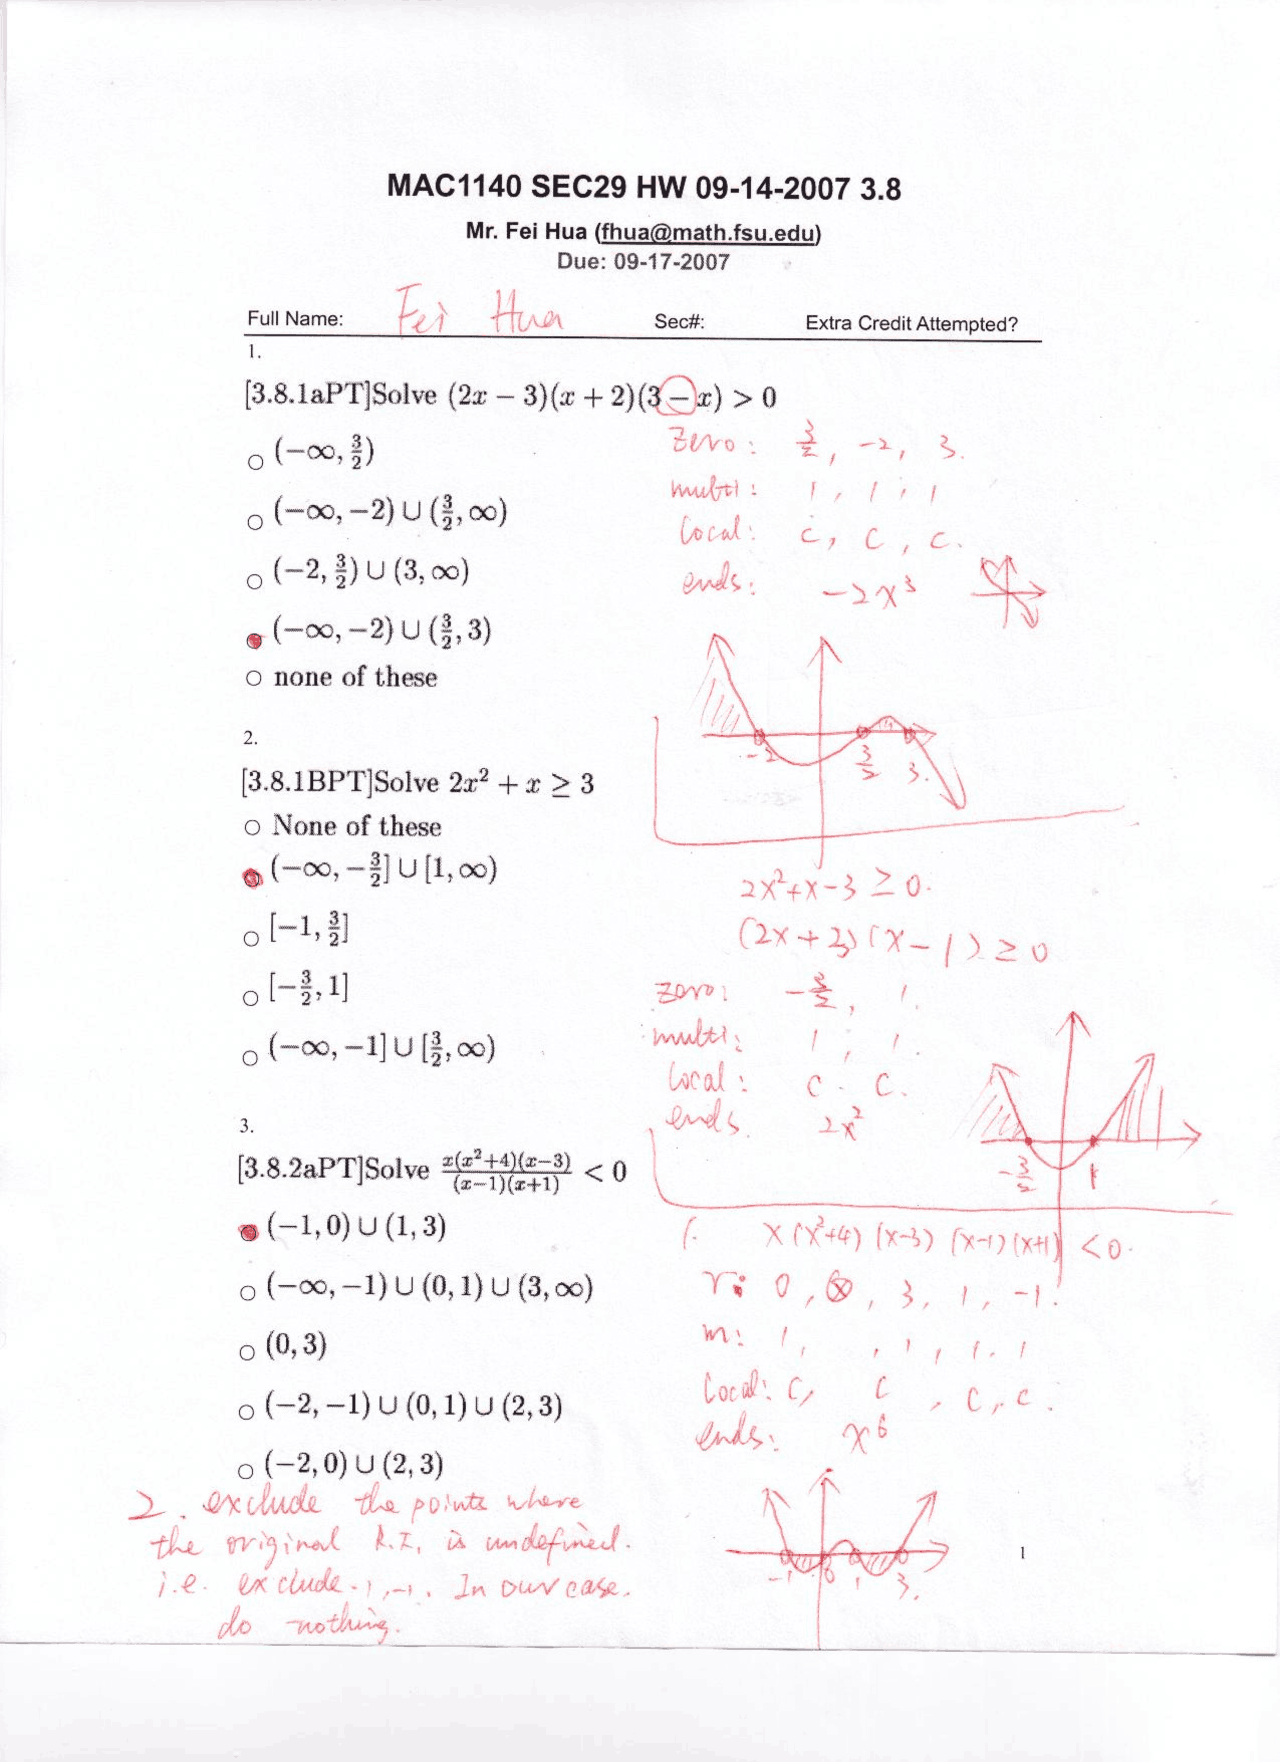 MAC1140 SEC29 HW 09-14-2007 3.8
Mr. Fei Hua (fhua@math.fsu.edu)
Due: 09-17-2007
Full Name: Fei Hua Sec#: Extra Credit Attempted?
1.
[3.8.1aPT]Solve (2x − 3)(x + 2)(3 − x) > 0
○ (−∞, 3/2)
○ (−∞, −2) ∪ (3/2, ∞)
○ (−2, 3/2) ∪ (3, ∞)
● (−∞, −2) ∪ (3/2, 3)
○ none of these
zero: 3/2, -2, 3.
multi: 1, 1, 1
local: c, c, c.
ends: -2x³
-2 3/2 3.
2.
[3.8.1BPT]Solve 2x² + x ≥ 3
○ None of these
● (−∞, −3/2] ∪ [1, ∞)
○ [−1, 3/2]
○ [−3/2, 1]
○ (−∞, −1] ∪ [3/2, ∞)
2x²+x-3 ≥ 0.
(2x+3)(x-1) ≥ 0
zero: -3/2, 1.
multi: 1, 1.
local: c. c.
ends 2x²
-3/2 1
3.
[3.8.2aPT]Solve x(x²+4)(x−3)/(x−1)(x+1) < 0
● (−1, 0) ∪ (1, 3)
○ (−∞, −1) ∪ (0, 1) ∪ (3, ∞)
○ (0, 3)
○ (−2, −1) ∪ (0, 1) ∪ (2, 3)
○ (−2, 0) ∪ (2, 3)
1. x(x²+4)(x-3)(x-1)(x+1) < 0.
r: 0, ⊗, 3, 1, -1.
m: 1, , 1, 1. 1
local: c, c, c, c.
ends: x⁶
-1 0 1 3.
2. exclude the points where
the original R.I. is undefined.
i.e. exclude 1, -1. In our case.
do nothing.
1